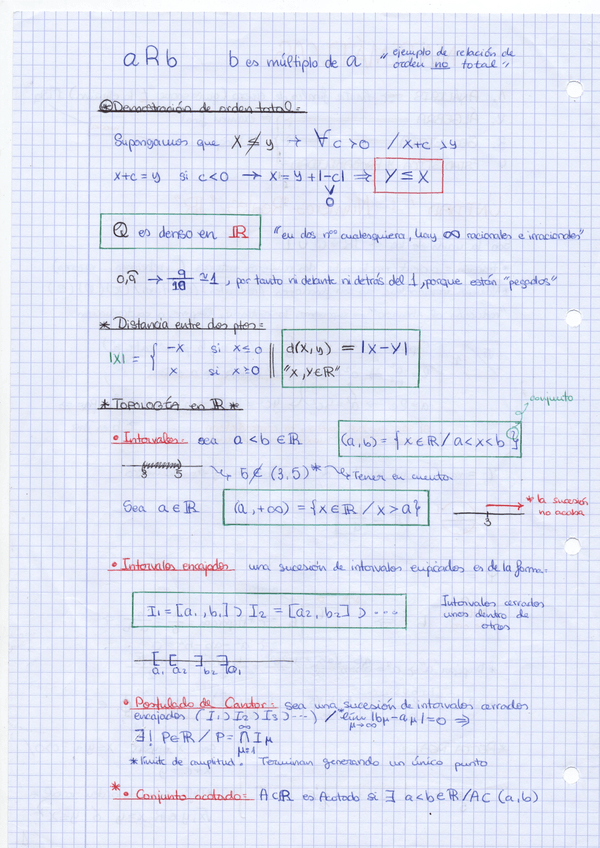 aRb b es múltiplo de a "ejemplo de relación de orden no total"
* Demostración de orden total:
Supongamos que x ≰ y → ∀c>0 / x+c > y
x+c = y si c<0 → x = y + |-c| ⇒ y ≤ x
0
Q es denso en ℝ "en dos nºs cualesquiera, hay ∞ racionales e irracionales"
0,9̂ → 9/10 ≃ 1, por tanto ni delante ni detrás del 1, porque están "pegados"
* Distancia entre dos ptos:
|x| = { -x si x ≤ 0 || d(x,y) = |x-y|
x si x ≥ 0 || "x,y∈ℝ"
* TOPOLOGÍA en ℝ *
conjunto
• Intervalos: sea a<b∈ℝ (a,b) = {x∈ℝ / a<x<b}
3 5 → 5∉(3,5)* → Tener en cuenta
Sea a∈ℝ (a,+∞) = {x∈ℝ / x>a} 3 * la sucesión no acaba
• Intervalos encajados una sucesión de intervalos encajados es de la forma:
I₁ = [a₁,b₁] ⊃ I₂ = [a₂,b₂] ⊃ ---- Intervalos cerrados unos dentro de otros
a₁ a₂ b₂ b₁
• Postulado de Cantor: Sea una sucesión de intervalos cerrados
encajados (I₁⊃I₂⊃I₃⊃---) / *lím |bμ-aμ|=0 ⇒
μ→∞
∃! P∈ℝ / P = ∩ Iμ
μ=1 ∞
* límite de amplitud. Terminan generando un único punto
* • Conjunto acotado: A⊂ℝ es Acotado si ∃ a<b∈ℝ/A⊂(a,b)